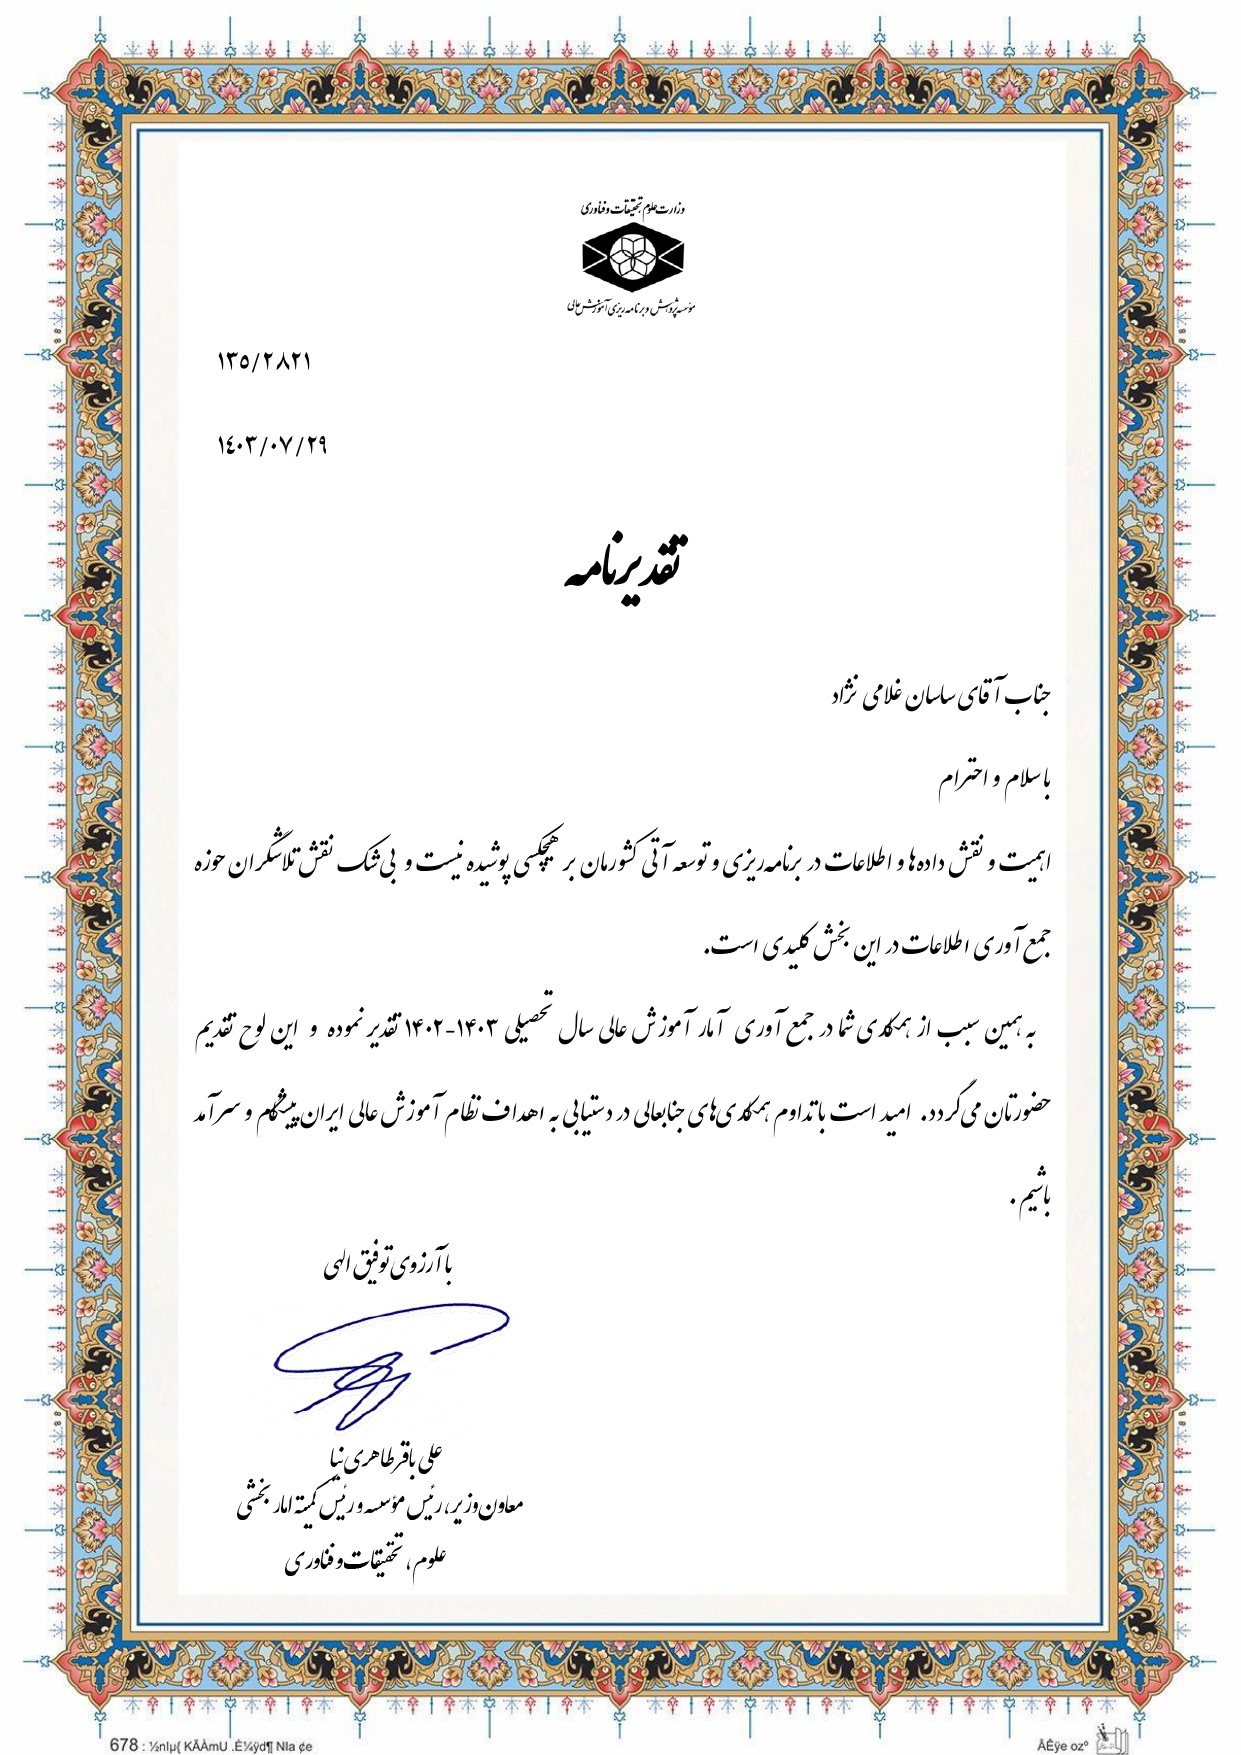 وزارت علوم تحقیقات و فناوری
مؤسسه پژوهش و برنامه ریزی آموزش عالی
۱۳۵/۲۸۲۱
۱٤۰۳/۰۷/۲۹
تقدیرنامه
جناب آقای ساسان غلامی نژاد
با سلام و احترام
اهمیت و نقش داده‌ها و اطلاعات در برنامه‌ریزی و توسعه آتی کشورمان بر هیچکسی پوشیده نیست و بی‌شک نقش تلاشگران حوزه
جمع آوری اطلاعات در این بخش کلیدی است.
به همین سبب از همکاری شما در جمع آوری آمار آموزش عالی سال تحصیلی ۱۴۰۳-۱۴۰۲ تقدیر نموده و این لوح تقدیم
حضورتان می‌گردد. امید است با تداوم همکاری‌های جنابعالی در دستیابی به اهداف نظام آموزش عالی ایران پیشگام و سرآمد
باشیم .
با آرزوی توفیق الهی
علی باقر طاهری نیا
معاون وزیر، رئیس مؤسسه و رئیس کمیته امار بخشی
علوم ، تحقیقات و فناوری
678 : ½nIµ{ KÃÀmU .É¼ÿd¶ NIa ¢e
ÂÊÿe oz°